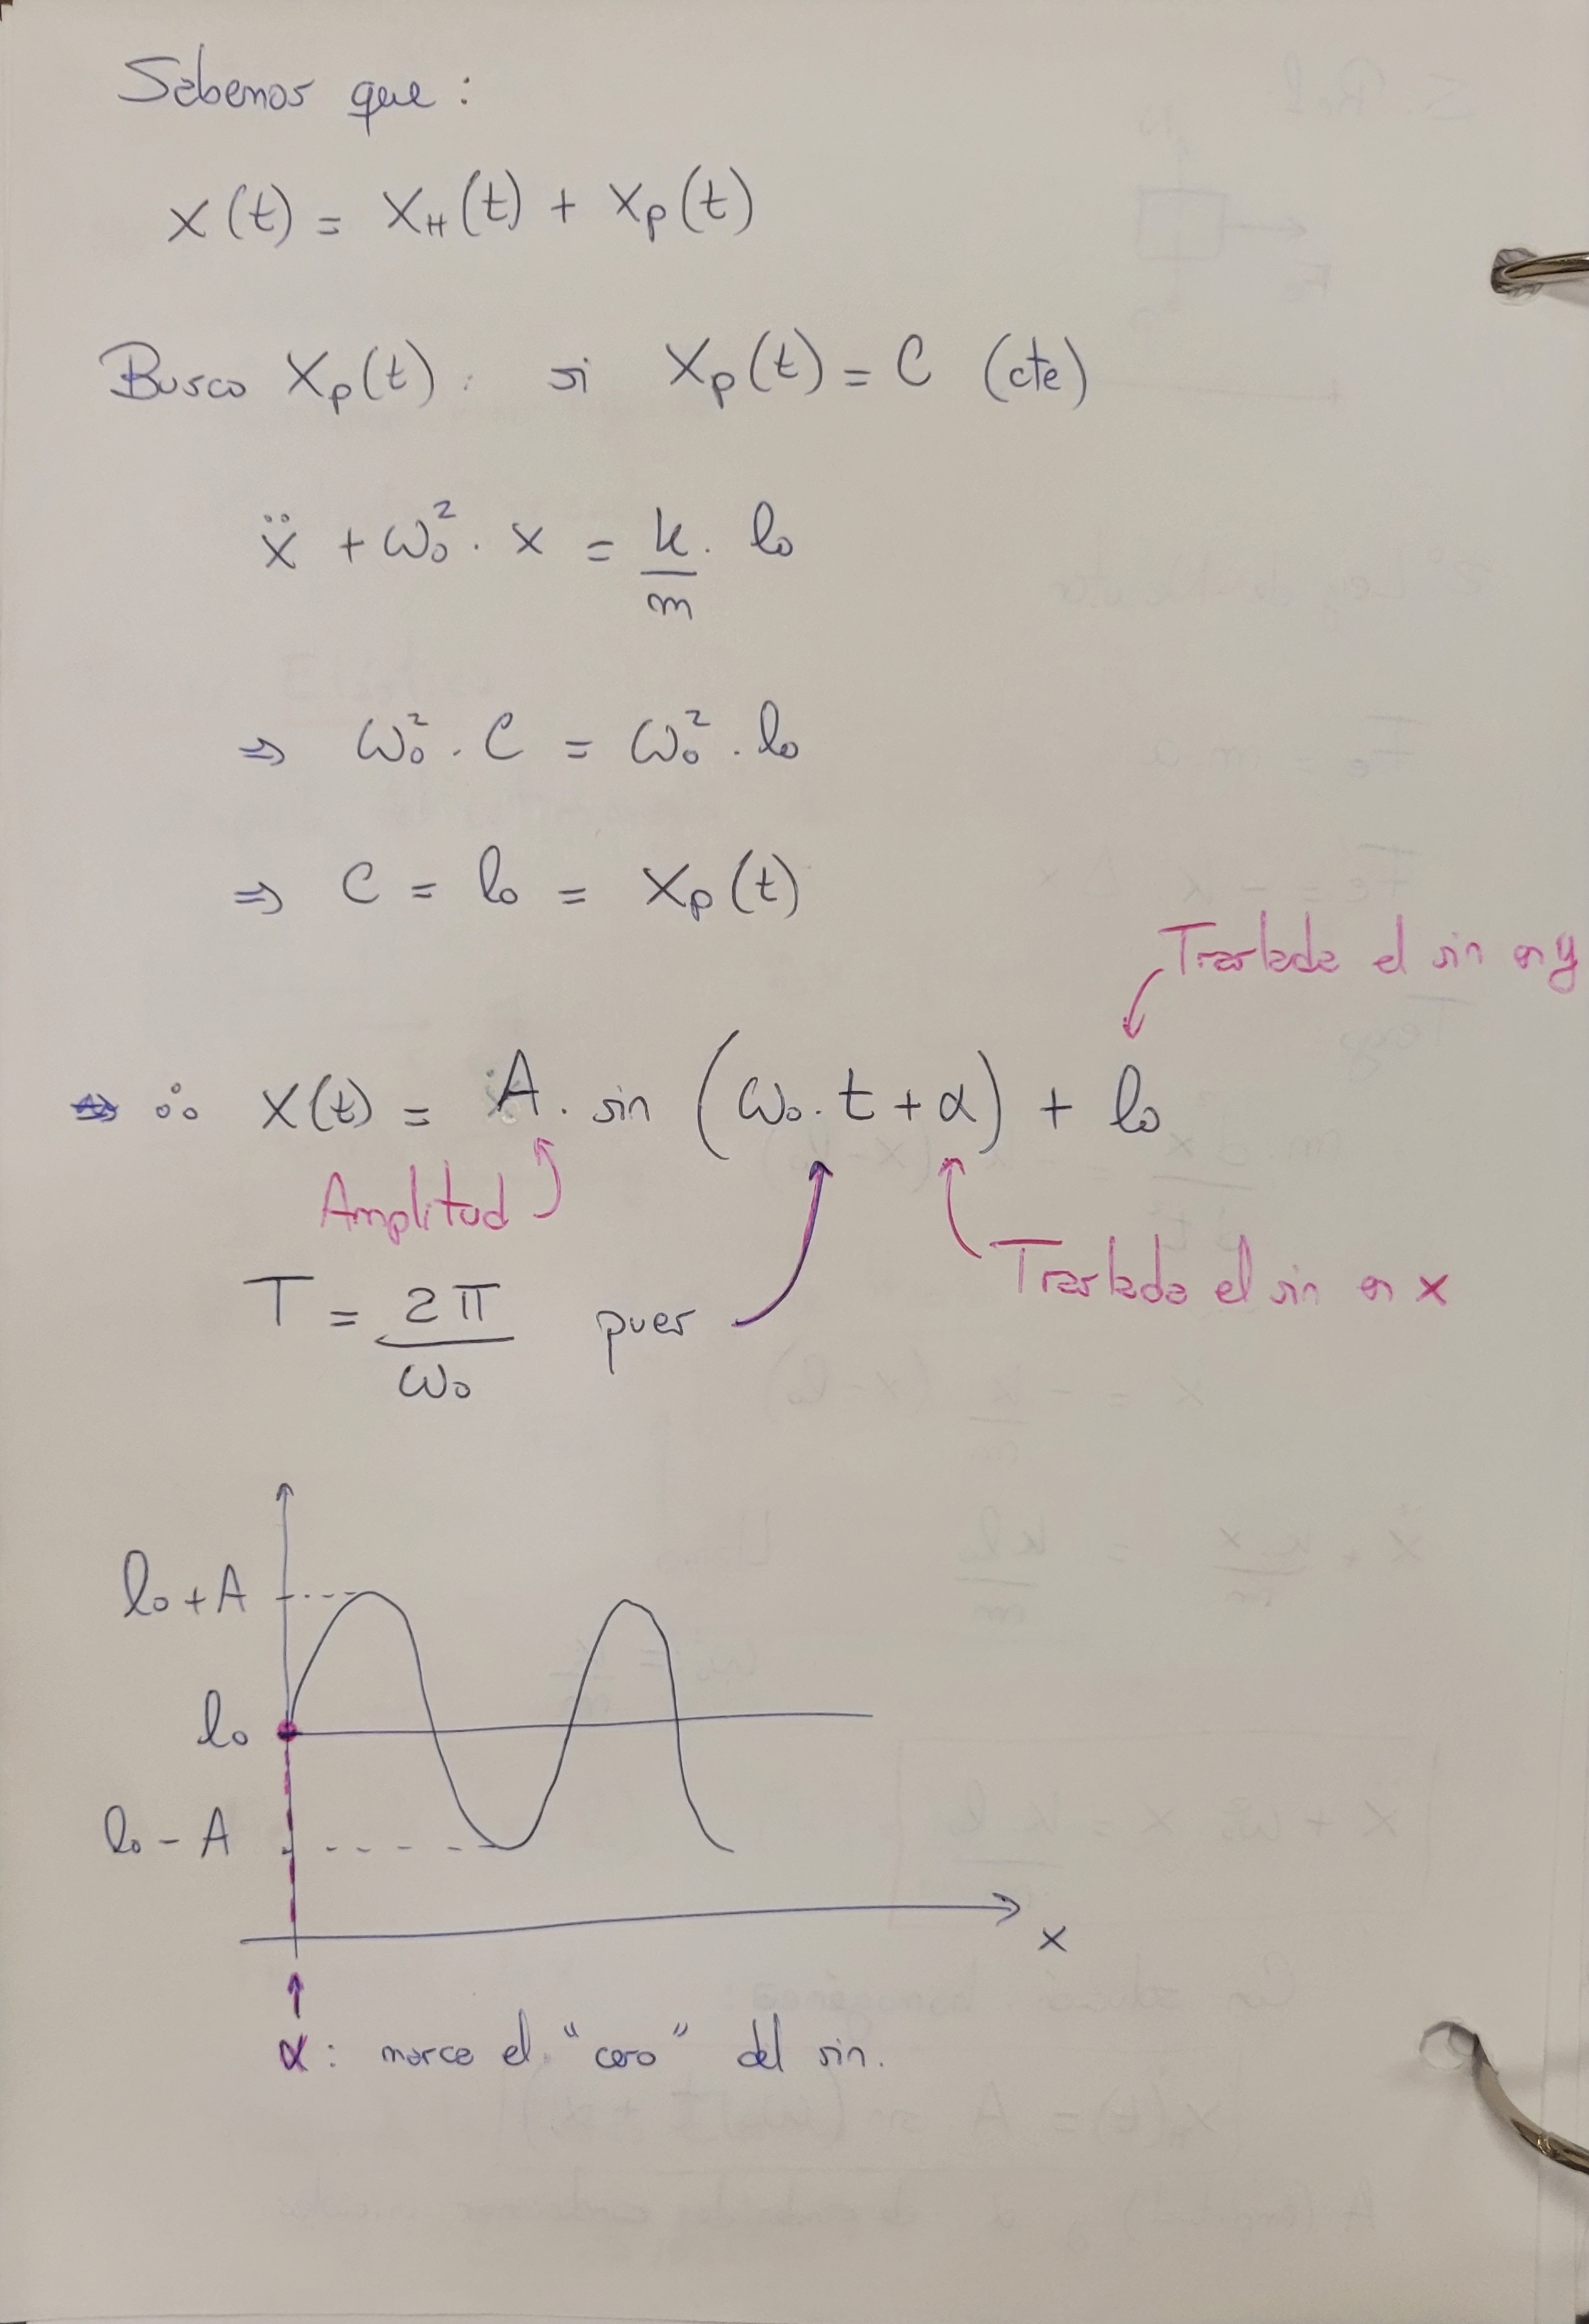 Sabemos que :
x(t) = x_H(t) + x_p(t)
Busco x_p(t) : si x_p(t) = C (cte)
ẍ + ω₀² . x = k/m . l₀
⇒ ω₀² . C = ω₀² . l₀
⇒ C = l₀ = x_p(t)
Traslada el sin en y
∴ x(t) = A . sin (ω₀ . t + α) + l₀
Amplitud
Traslada el sin en x
T = 2π/ω₀ pues
l₀ + A
l₀
l₀ - A
x
α : marca el "cero" del sin.